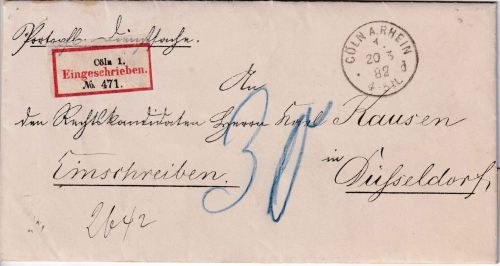 Portopfl. Dienstsache.
Cöln 1.
Eingeschrieben.
No. 471.
CÖLN A. RHEIN
1.
20 3
82
d
An
den Rechtskandidaten Herrn Karl Kausen
in
Einschreiben.
Düsseldorf
30
2642